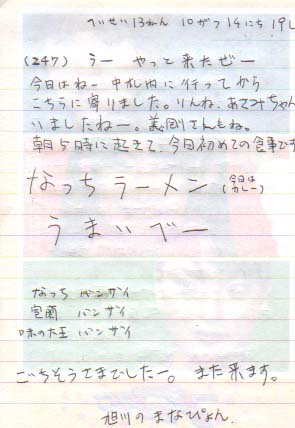 へいせい13ねん 10がつ14にち 19し
(247) うー やっと来たぜー
今日はねー 中札内に行ってから
こちらに寄りました。りんね、あさみちゃん
いましたねー。義剛さんもね。
朝5時に起きて、今日初めての食事です
なっちラーメン(今日はカレー)
うまいべー
なっち バンザイ
室蘭 バンザイ
味の大王 バンザイ
ごちそうさまでしたー。 また来ます。
旭川のまなぴょん.